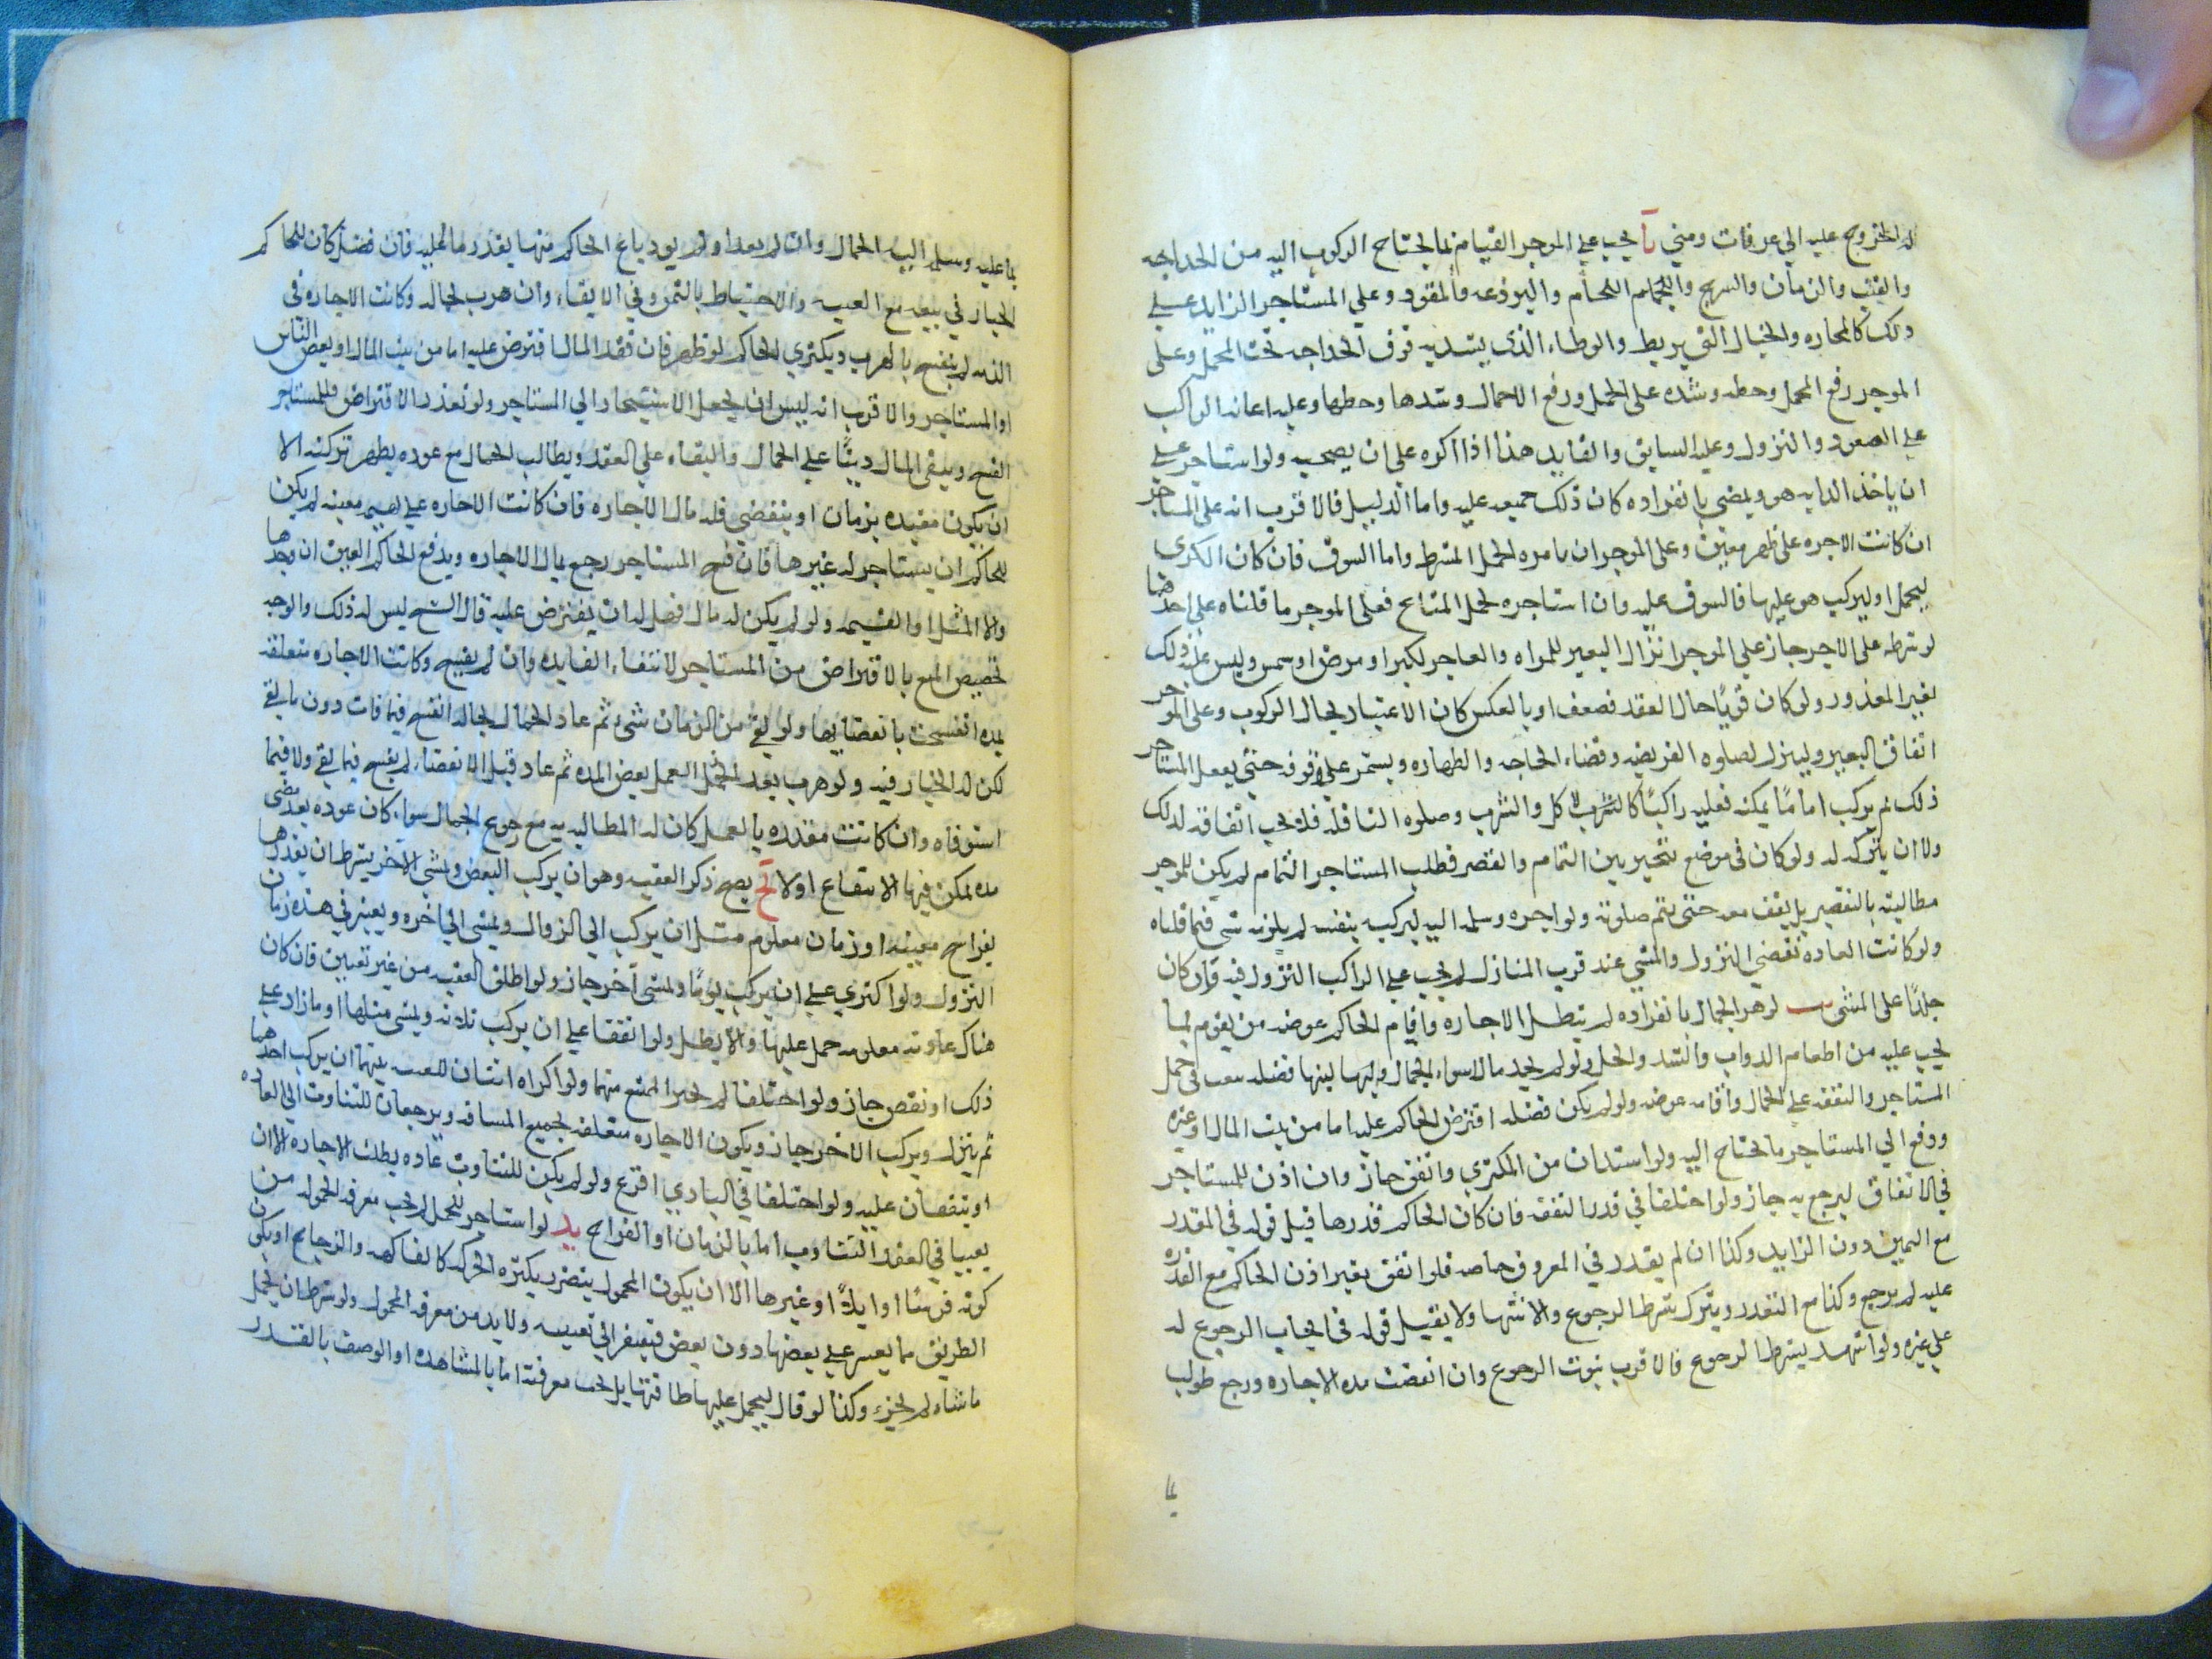 له الخروج عليه الي عرفات ومني يا يجب علي الموجر القيام بما يحتاج الركوب اليه من الحداجه
والقتب والزمان والسرج واللجام الحام والبرذعه والمقود وعلي المستاجر الزايد علي
ذلك كالمحاره والحبال التي يربط والوطاء الذي يشد به فوق الحداجه تحت المحمل وعلى
الموجر رفع المحمل وحطه وشده على الجمل ورفع الاحمال وشدها وحطها وعليه اعانه الراكب
علي الصعود والنزول وعليه السايق والقايد هذا اذا اكره علي ان يصحبه ولو استاجر علي
ان ياخذ الدابه هو ويمضي بانفراده كان ذلك جميعه عليه واما الدليل فالاقرب انه على المستاجر
ان كانت الاجره على ظهر معين وعلى الموجر ان مره لحمل المشرط واما السوق فان كان الكري
ليحمل او ليركب هو عليها فالسوق عليه وان استاجره لحمل المتاع فعلى الموجر ما قلناه على احدهما
لو شرطه على الاجر جاز علي الموجر انزال البعير للمراه والعاجر لكبر او مرض او سمن وليس عليه ذلك
لغير المعذور ولو كان قويا حال العقد فضعف او بالعكس كان الاعتبار بحال الركوب وعلى الموجر
اتفاق البعير ولينزل لصلوه الفريضه وقضاء الحاجه والطهاره ويستمر علي وقوفه حتي يفعل المستاجر
ذلك ثم يركب اما ما يمكنه فعليه راكبا كالاكل والشرب وصلوه النافله فلا يجب اتفاقه لذلك
ولا ان يتركه له ولو كان في موضع تخير بين التمام والقصر فطلب المستاجر التمام لم يكن للموجر
مطالبته بالتقصير بل يقف معه حتى يتم صلوته ولو اجره وسلمه اليه ليركبه بنفسه لم يلزمه شي فيما قلناه
ولو كانت العاده تقضي النزول والمشي عند قرب المنازل لم يجب علي الراكب النزول فيه وان كان
جلدا على المشي يب لو هرب الجمال بانفراده لم يبطل الاجاره واقام الحاكم عوضه من يقوم بما
يجب عليه من اطعام الدواب والشد والحل ولو لم يجد مالا سواء الجمال وليها بينها فضله بيعت في حمل
المستاجر والنفقه علي الجمال واقامه عوضه ولو لم يكن فضله اقترض الحاكم عليه اما من بيت المال او غيره
ودفع الي المستاجر ما يحتاج اليه ولو استدان من المكتري وانفق جاز وان اذن للمستاجر
في الانفاق ليرجع به جاز ولو اختلفا في قدر النفقه فان كان الحاكم قدرها قبل قوله في المقدر
مع اليمين دون الزايد وكذا ان لم يقدر في المعروف خاصه فلو انفق بغير اذن الحاكم مع القدره
عليه لم يرجع وكذا مع التعذر وبترك شرط الرجوع والاشهاد ولا يقبل قوله في ايجاب الرجوع له
علي غيره ولو اشهد بشرط الرجوع فالاقرب ثبوت الرجوع وان انقضت مده الاجاره ورجع طولب
بما
بما عليه وسلم اليه الجمال وان لم يعد او لم يود باع الحاكم منها بقدر ما عليه فان فضل كان للحاكم
الخيار في بيعه مع العيب والاحتياط بالثمن وفي الابقاء وان هرب بجماله وكانت الاجاره في
الذمه لم ينفسخ بالهرب ويكتري الحاكم لو ظهر فان فقد المال اقترض عليه اما من بيت المال او بعض الناس
او المستاجر والاقرب انه ليس ان يجعل الاستيجار الي المستاجر ولو تعذر الاقتراض فللمستاجر
الفسخ ويبقى المال دينا علي الجمال والبقاء علي العقد ويطالب الجمال مع عوده بظهر تركته الا
ان يكون مقيده بزمان او ينقضي فله مال الاجاره فان كانت الاجاره علي معينه لم يكن
للحاكم ان يستاجر له غيرها فان فسخ المستاجر رجع بمال الاجاره ويدفع الحاكم العين ان وجدها
والا المثل او القيمه ولو لم يكن له مال فهل له ان يقترض عليه قال الشيخ ليس له ذلك والوجه
تخصيص المنع بالاقتراض من المستاجر لانتفاء الفايده وان لم يفسخ وكانت الاجاره متعلقه
بمده انفسخت بانقضايها ولو بقي من الزمان شئ ثم عاد الجمال بجماله انفسخ فيما فات دون ما بقي
لكن له الخيار فيه ولو هرب بعد العمل بعض المده ثم عاد قبل الانقضاء لم ينفسخ فيما بقي ولا فيما
استوفاه وان كانت مقدره بالعمل كان له المطالبه به مع رجوع الجمال سواء كان عوده بعد مضي
مده يمكن فيها الانتفاع اولا يج يصح ذكر العقبه وهو ان يركب البعض ويمشي الاخر بشرط ان يقدرها
بفراسخ معينه او زمان معلوم مثل ان يركب الي الزوال ويمشي الي اخره ويعتبر في هذه زمان
النزول ولو اكتري علي ان يركب يوما ويمشي آخر جاز ولو اطلق العقبه من غير تعيين فان كان
هناك عادته معلومه حمل عليها والا بطل ولو اتفقا علي ان يركب ثلاثه ويمشي مثلها او ما زاد علي
ذلك او نقص جاز ولو اختلفا لم يجبر الممتنع منهما ولو اكراه اثنان للعقبه بينهما ان يركب احدهما
ثم ينزل ويركب الاخر جاز ويكون الاجاره متعلقه بجميع المسافه ويرجعان للتناوب الي العاده
او يتفقان عليه ولو اختلفا في البادي اقرع ولو لم يكن للتناوب عاده بطلت الاجاره الا ان
يعينا في العقد التناوب اما بالزمان او الفراسخ يد لو استاجر للحمل لم يجب معرفه الحموله من
كونه فرسا او ابلا او غيرها الا ان يكون المحمول يتضرر بكثره الحركه كالفاكهه والزجاج او يكون
الطريق ما يعسر علي بعضها دون بعض فيفتقر الي تعيينه ولا بد من معرفه المحمول ولو شرط ان يحمل
ما شاء لم يجز وكذا لو قال ليحمل عليها طاقتها بل يجب معرفته اما بالمشاهده او الوصف بالقدر